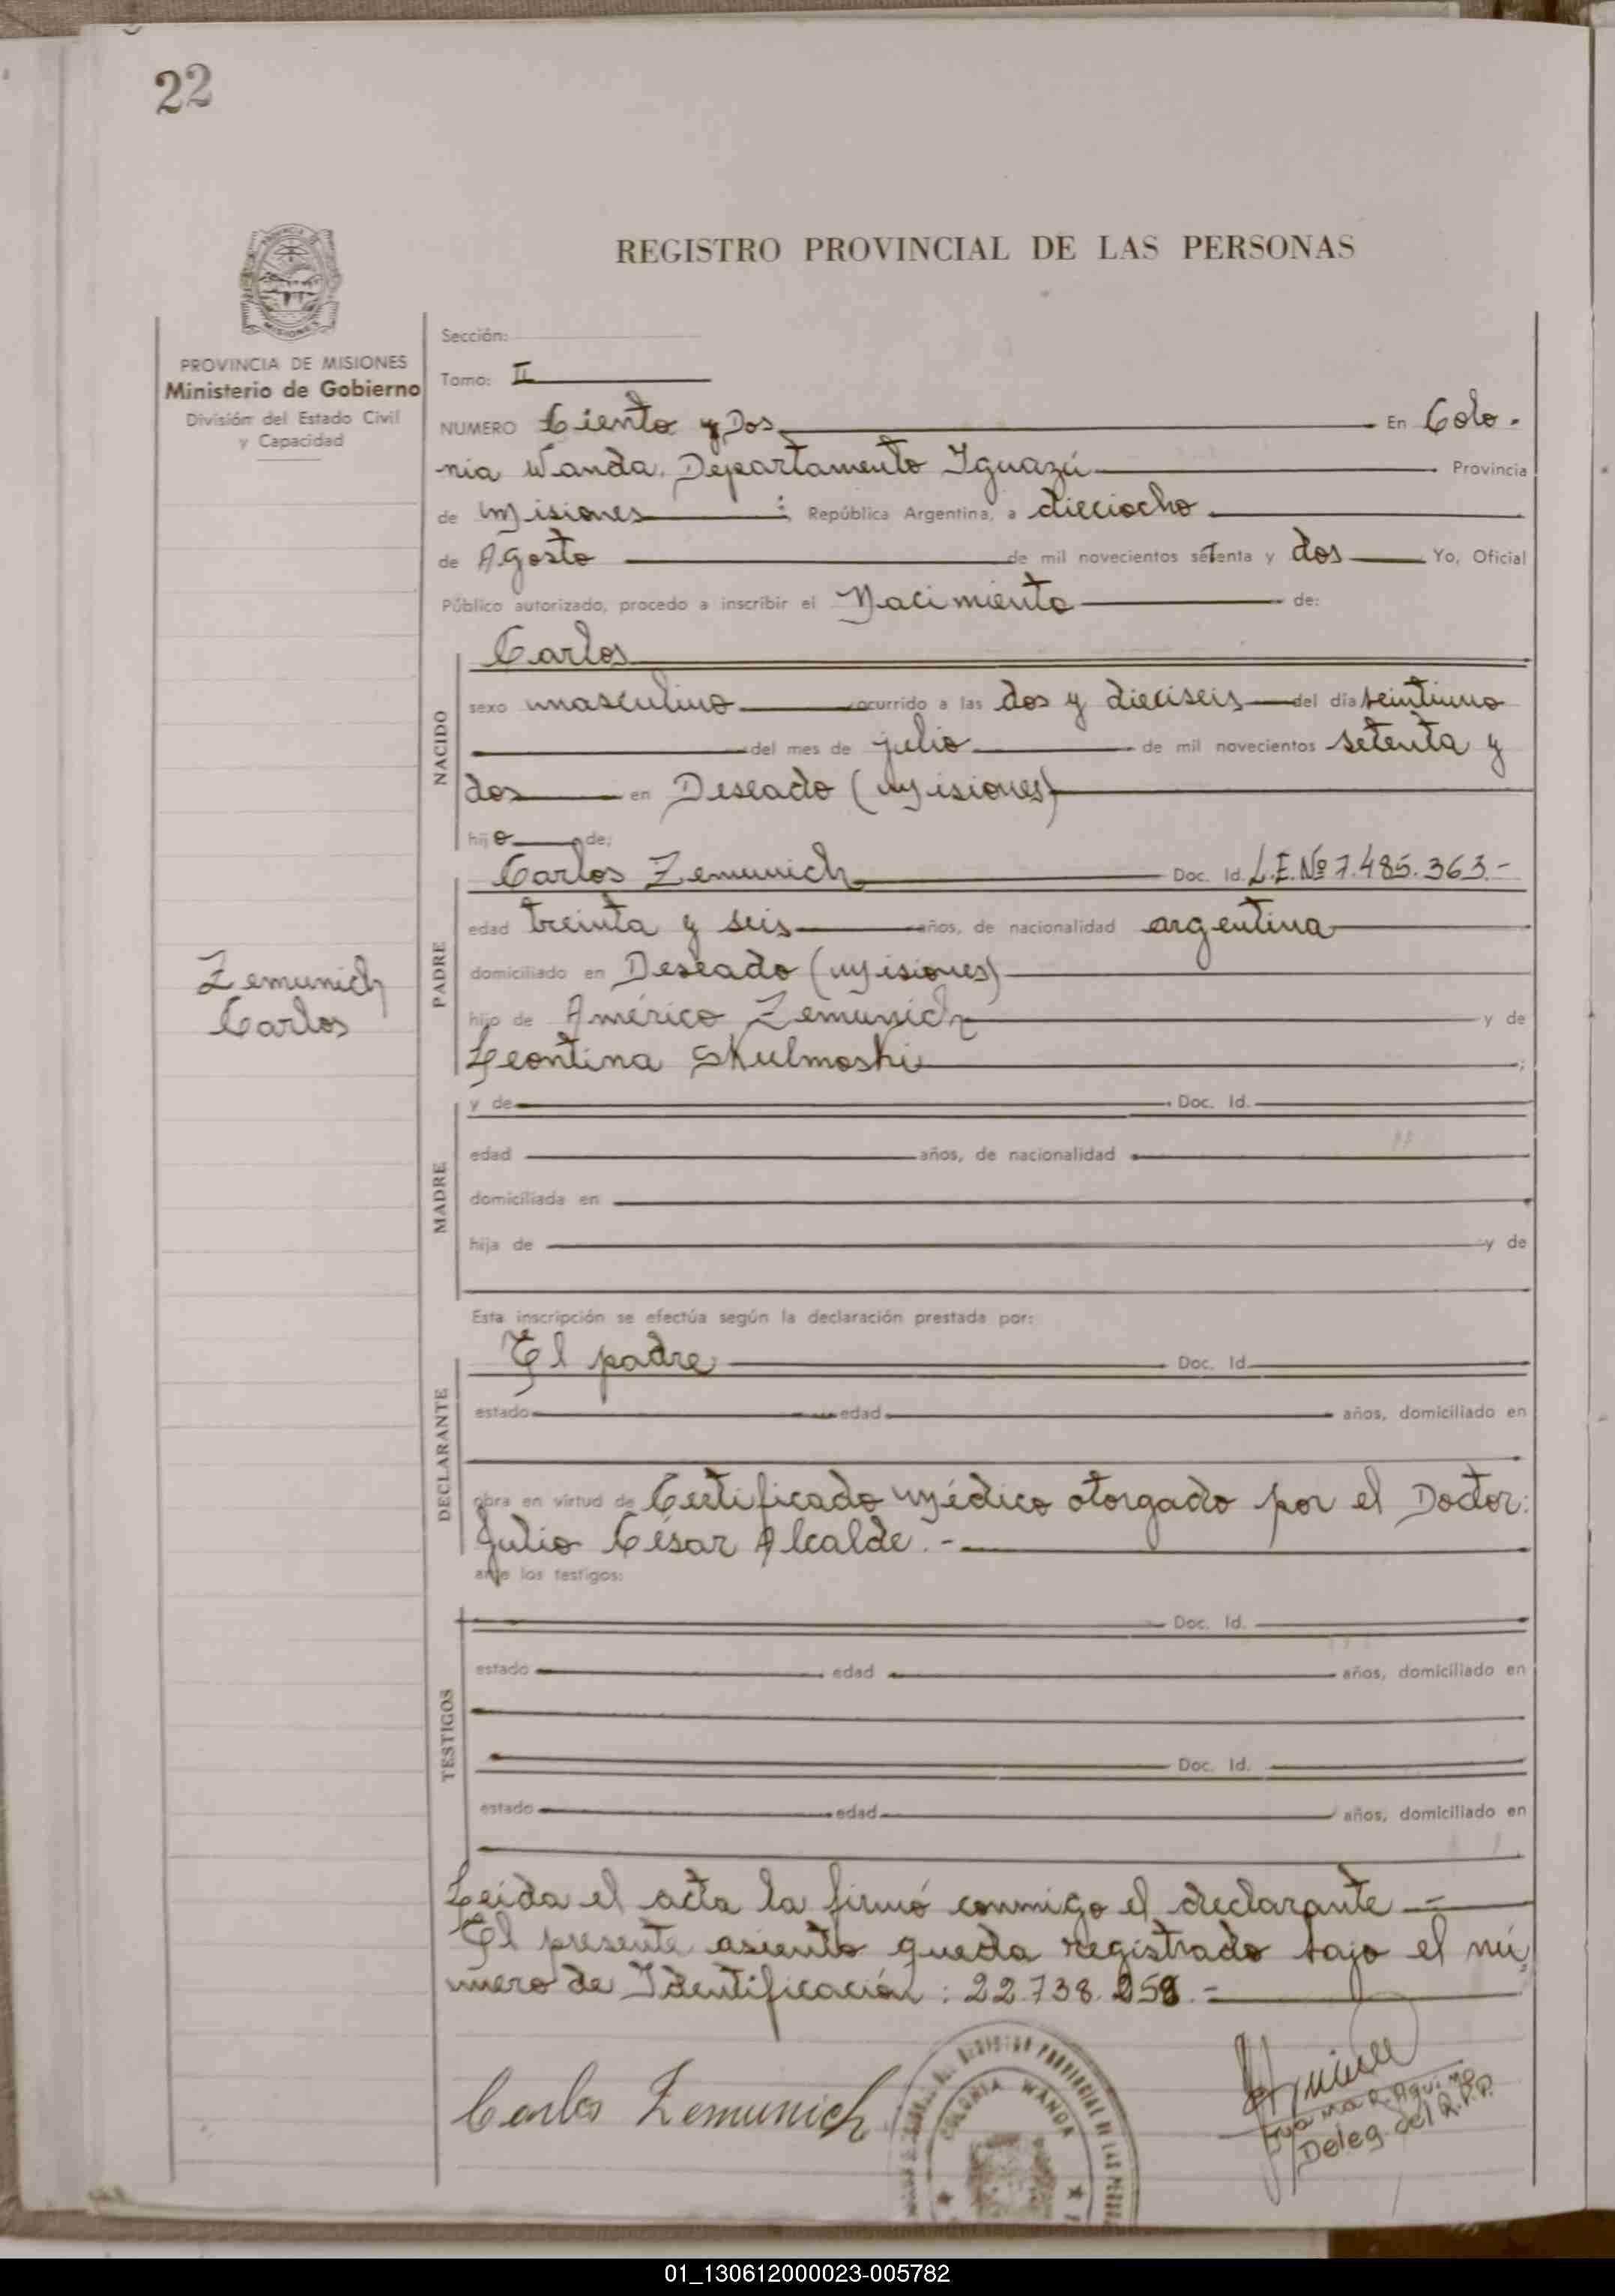 22
REGISTRO PROVINCIAL DE LAS PERSONAS
PROVINCIA DE MISIONES
Ministerio de Gobierno
División del Estado Civil
y Capacidad
Sección:
Tomo: II
NUMERO Ciento y Dos En Colo-
nia Wanda. Departamento Iguazú Provincia
de Misiones ; República Argentina, a dieciocho
de Agosto de mil novecientos setenta y dos Yo, Oficial
Público autorizado, procedo a inscribir el Nacimiento de:
Carlos
NACIDO
sexo masculino ocurrido a las dos y dieciseis del día veintiuno
del mes de julio de mil novecientos setenta y
dos en Deseado (Misiones)
hijo de:
Carlos Zemunich Doc. Id. L.E. Nº 7.485.363.-
PADRE
edad treinta y seis años, de nacionalidad argentina
domiciliado en Deseado (Misiones)
hijo de Américo Zemunich y de
Leontina Skulmoski ;
Zemunich
Carlos
MADRE
y de Doc. Id.
edad años, de nacionalidad
domiciliada en
hija de y de
Esta inscripción se efectúa según la declaración prestada por:
El padre Doc. Id.
DECLARANTE
estado edad años, domiciliado en
obra en virtud de Certificado Médico otorgado por el Doctor:
Julio César Alcalde.-
ante los testigos:
TESTIGOS
Doc. Id.
estado edad años, domiciliado en
Doc. Id.
estado edad años, domiciliado en
Leida el acta la firmó conmigo el declarante.-
El presente asiento queda registrado bajo el nú-
mero de Identificación: 22.738.258.-
Carlos Zemunich
REGISTRO PROVINCIAL DE LAS
COLONIA WANDA
Deleg. del R.P.P.
01_130612000023-005782